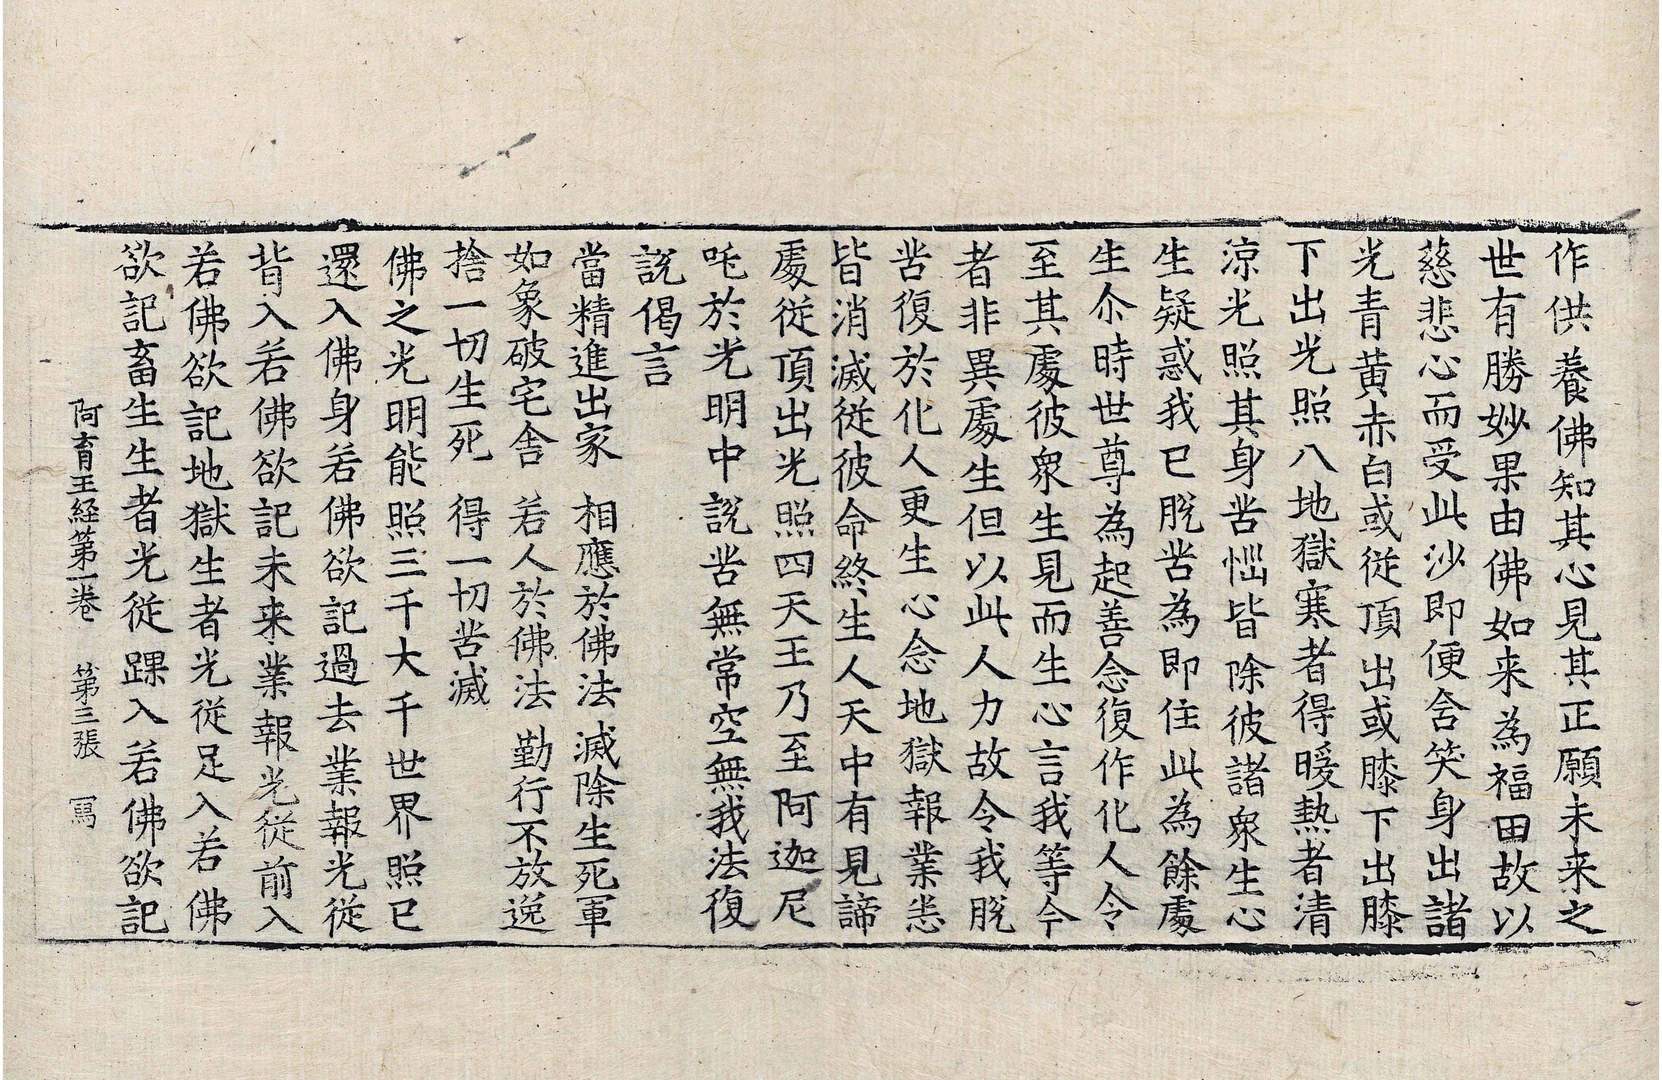 作供養佛知其心見其正願未来之
世有勝妙果由佛如来為福田故以
慈悲心而受此沙即便含笑身出諸
光青黄赤白或従頂出或膝下出膝
下出光照八地獄寒者得暖熱者清
涼光照其身苦惱皆除彼諸衆生心
生疑惑我已脫苦為即住此為餘處
生尒時世尊為起善念復作化人令
至其處彼衆生見而生心言我等今
者非異處生但以此人力故令我脫
苦復於化人更生心念地獄報業悉
皆消滅従彼命終生人天中有見諦
處従頂出光照四天王乃至阿迦尼
吒於光明中説苦無常空無我法復
説偈言
當精進出家 相應於佛法 滅除生死軍
如象破宅舍 若人於佛法 勤行不放逸
捨一切生死 得一切苦滅
佛之光明能照三千大千世界照已
還入佛身若佛欲記過去業報光従
背入若佛欲記未来業報光従前入
若佛欲記地獄生者光従足入若佛
欲記畜生生者光従踝入若佛欲記
阿育王経第一卷 第三張 寫